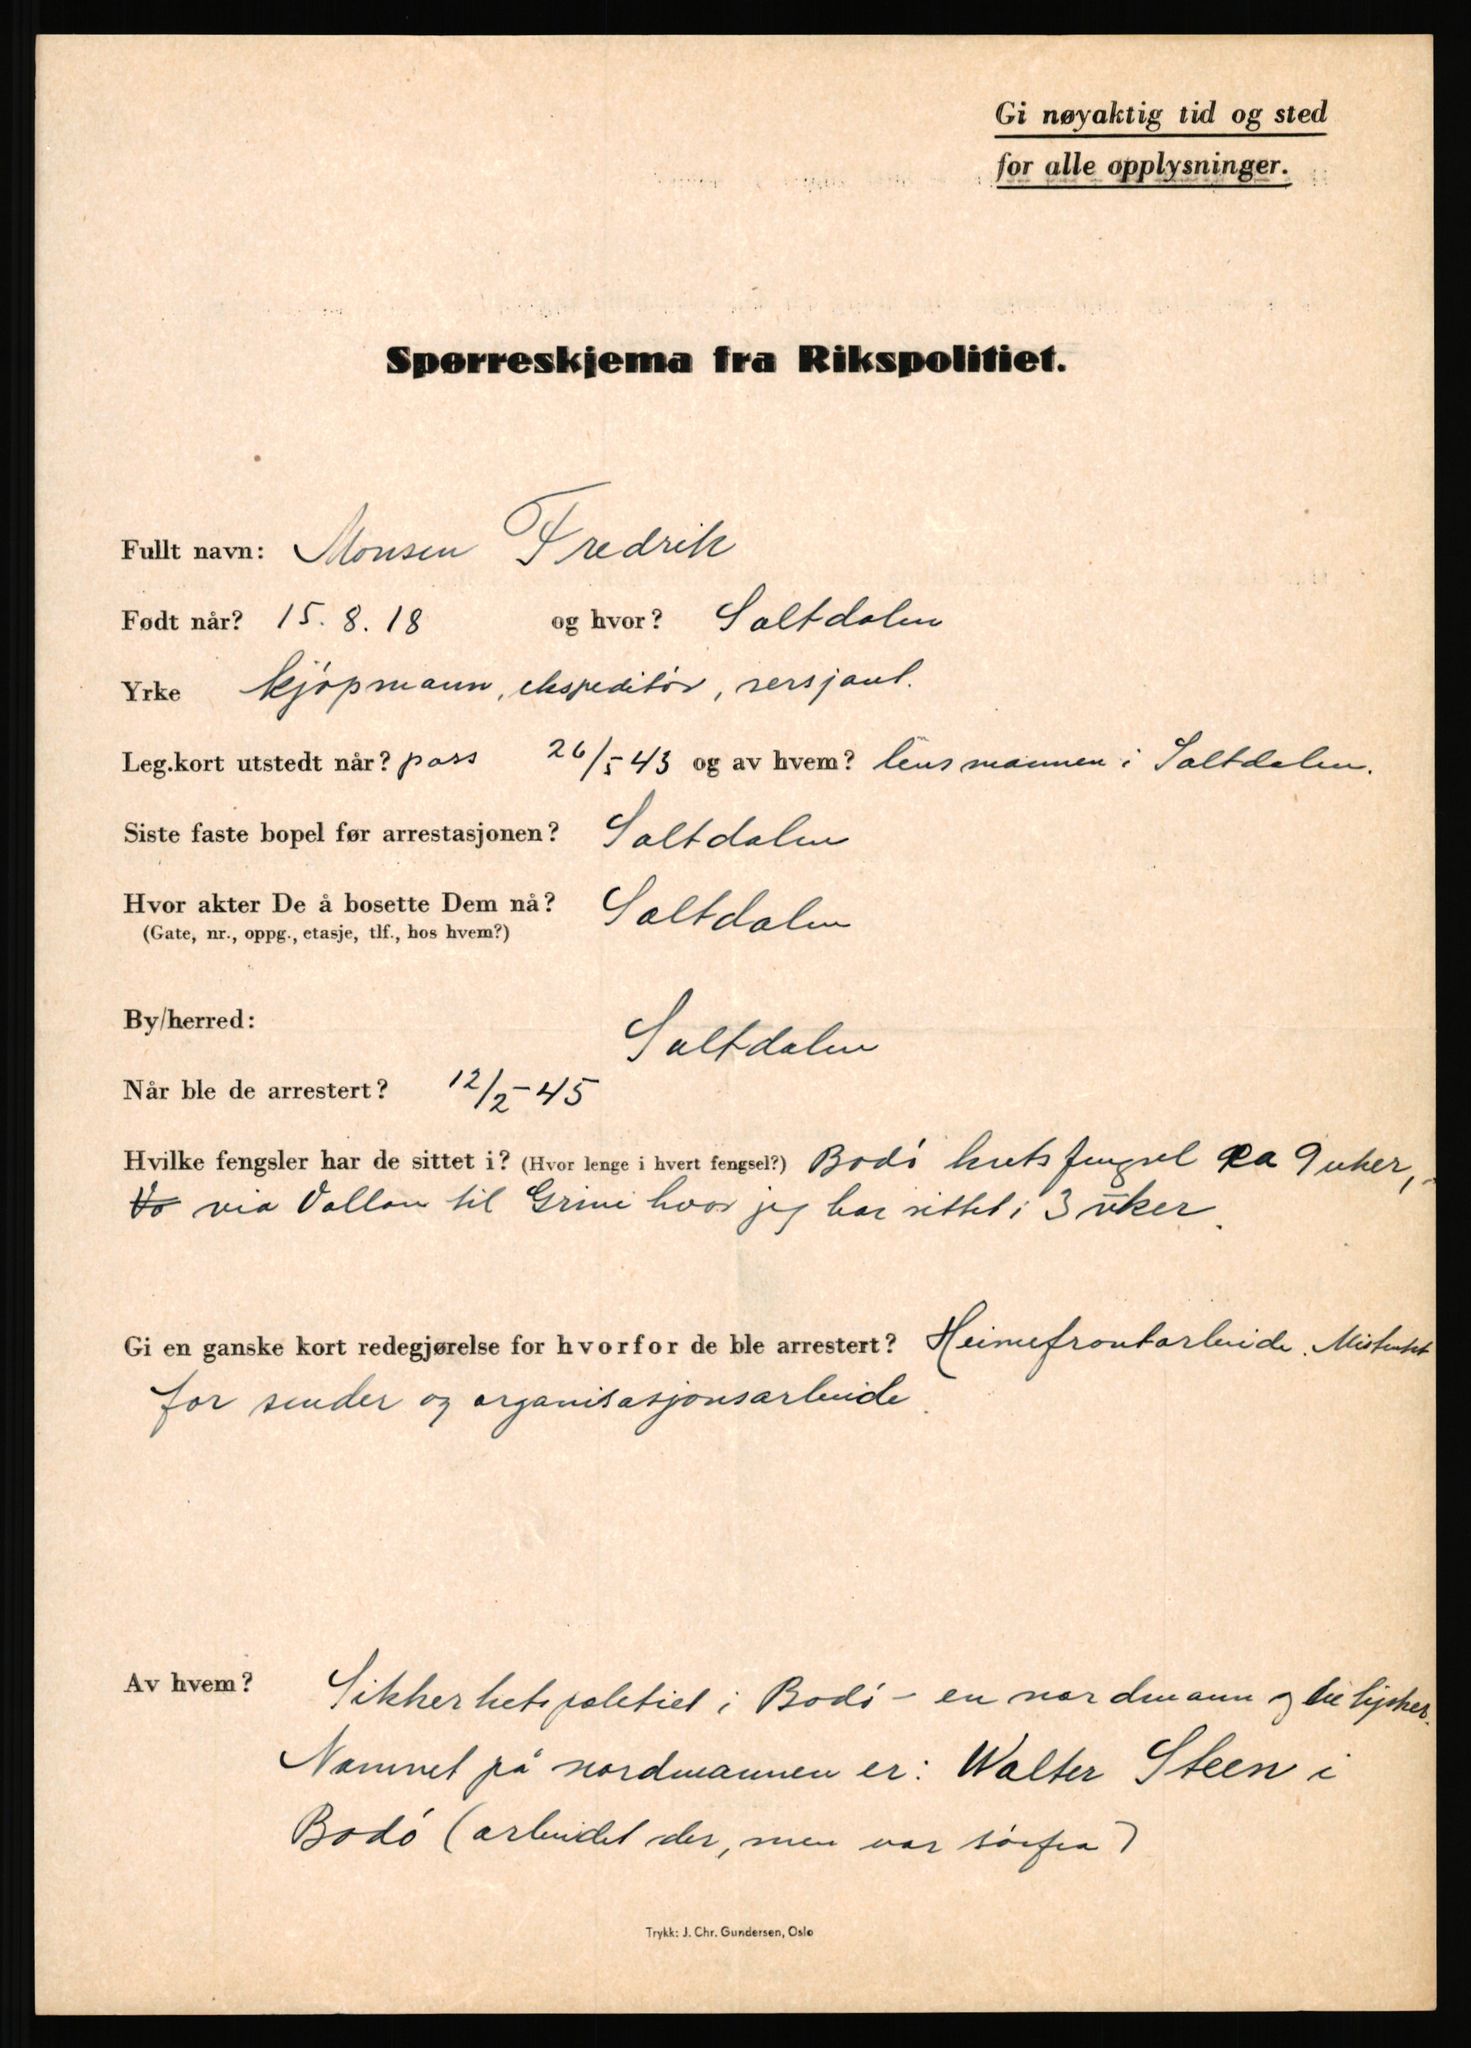 Gi nøyaktig tid og sted
for alle opplysninger.
Spørreskjema fra Rikspolitiet.
Fullt navn: Monsen Fredrik
Født når? 15.8.18 og hvor? Saltdalen
Yrke kjøpmann, ekspeditør, sersjant.
Leg.kort utstedt når? pass 26/5 43 og av hvem? lensmannen i Saltdalen.
Siste faste bopel før arrestasjonen? Saltdalen
Hvor akter De å bosette Dem nå? Saltdalen
(Gate, nr., oppg., etasje, tlf., hos hvem?)
By/herred: Saltdalen
Når ble de arrestert? 12/2-45
Hvilke fengsler har de sittet i? (Hvor lenge i hvert fengsel?) Bodø kretsfengsel ca 9 uker,
via Vollan til Grini hvor jeg har sittet i 3 uker.
Gi en ganske kort redegjørelse for hvorfor de ble arrestert? Heimefrontarbeide. Mistenkt
for sender og organisasjonsarbeide.
Av hvem? Sikkerhetspolitiet i Bodø - en nordmann og tysker.
Namnet på nordmannen er: Walter Steen i
Bodø (arbeidet der, men var sørfra)
Trykk: J. Chr. Gundersen, Oslo